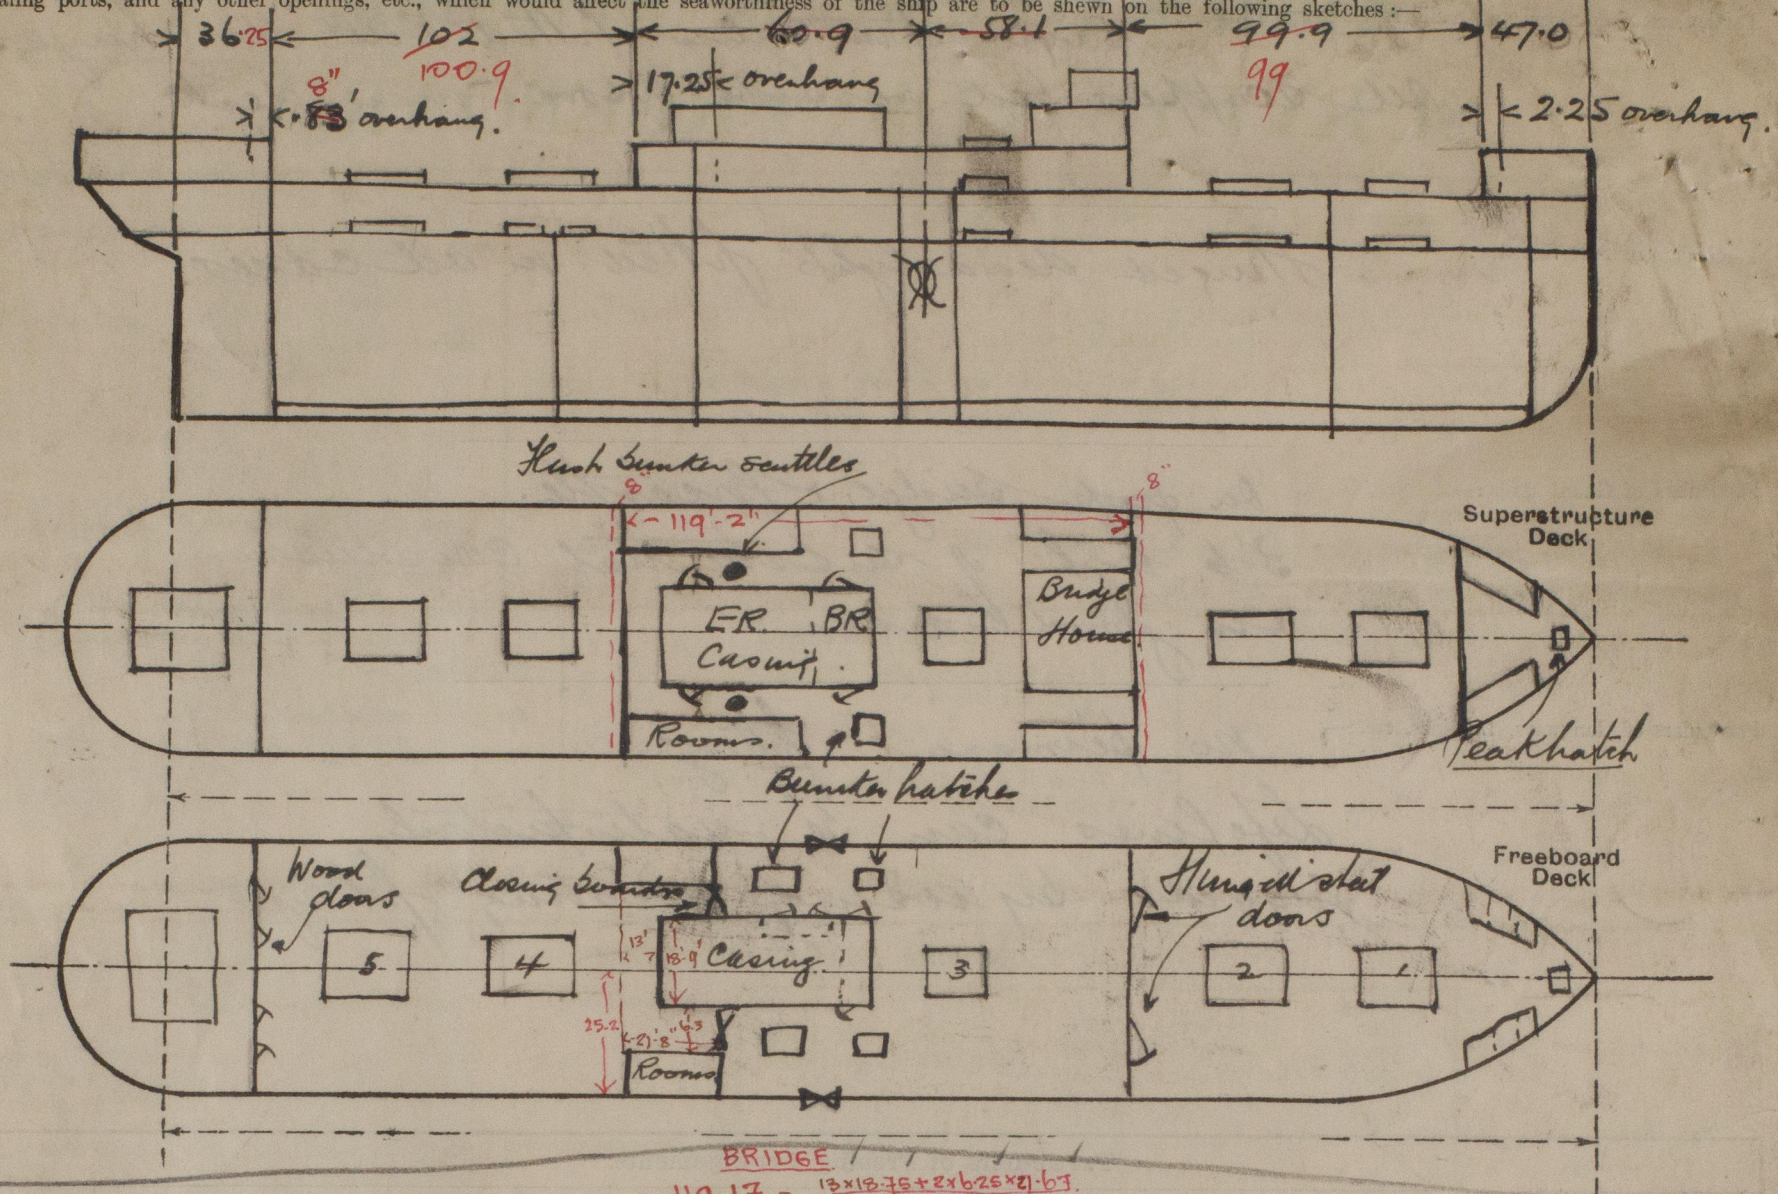 ating ports, and any other openings, etc., which would affect the seaworthiness of the ship are to be shewn on the following sketches :—
36.25 102 60.9 58.1 99.9 47.0
100.9 99
8" 17.25 overhang
.83' overhang. 2.25 overhang.
Flush bunker scuttles
8" 8"
119'-2"
Superstructure
Deck
E.R. B.R.
Casing
Bridge
House
Rooms.
Peak hatch
Bunker hatches
Freeboard
Deck
Wood
doors
Closing boards
Hinged steel
doors
5 4 13' 7 18'-9" Casing 3 2 1
25.2 21'-8" 6'3
Rooms
BRIDGE
13×18.75+2×6.25×21.67
119.17 -